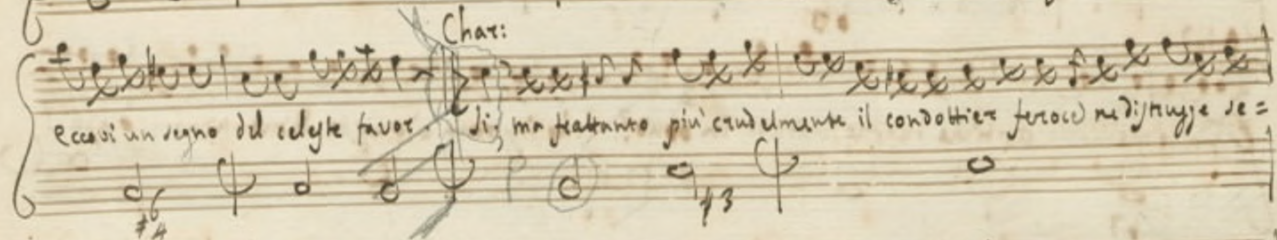 Char:
eccovi un segno del celeste favor. Si, ma frattanto più crudelmente il condottier feroce ne distrugge se=
6
#4
43